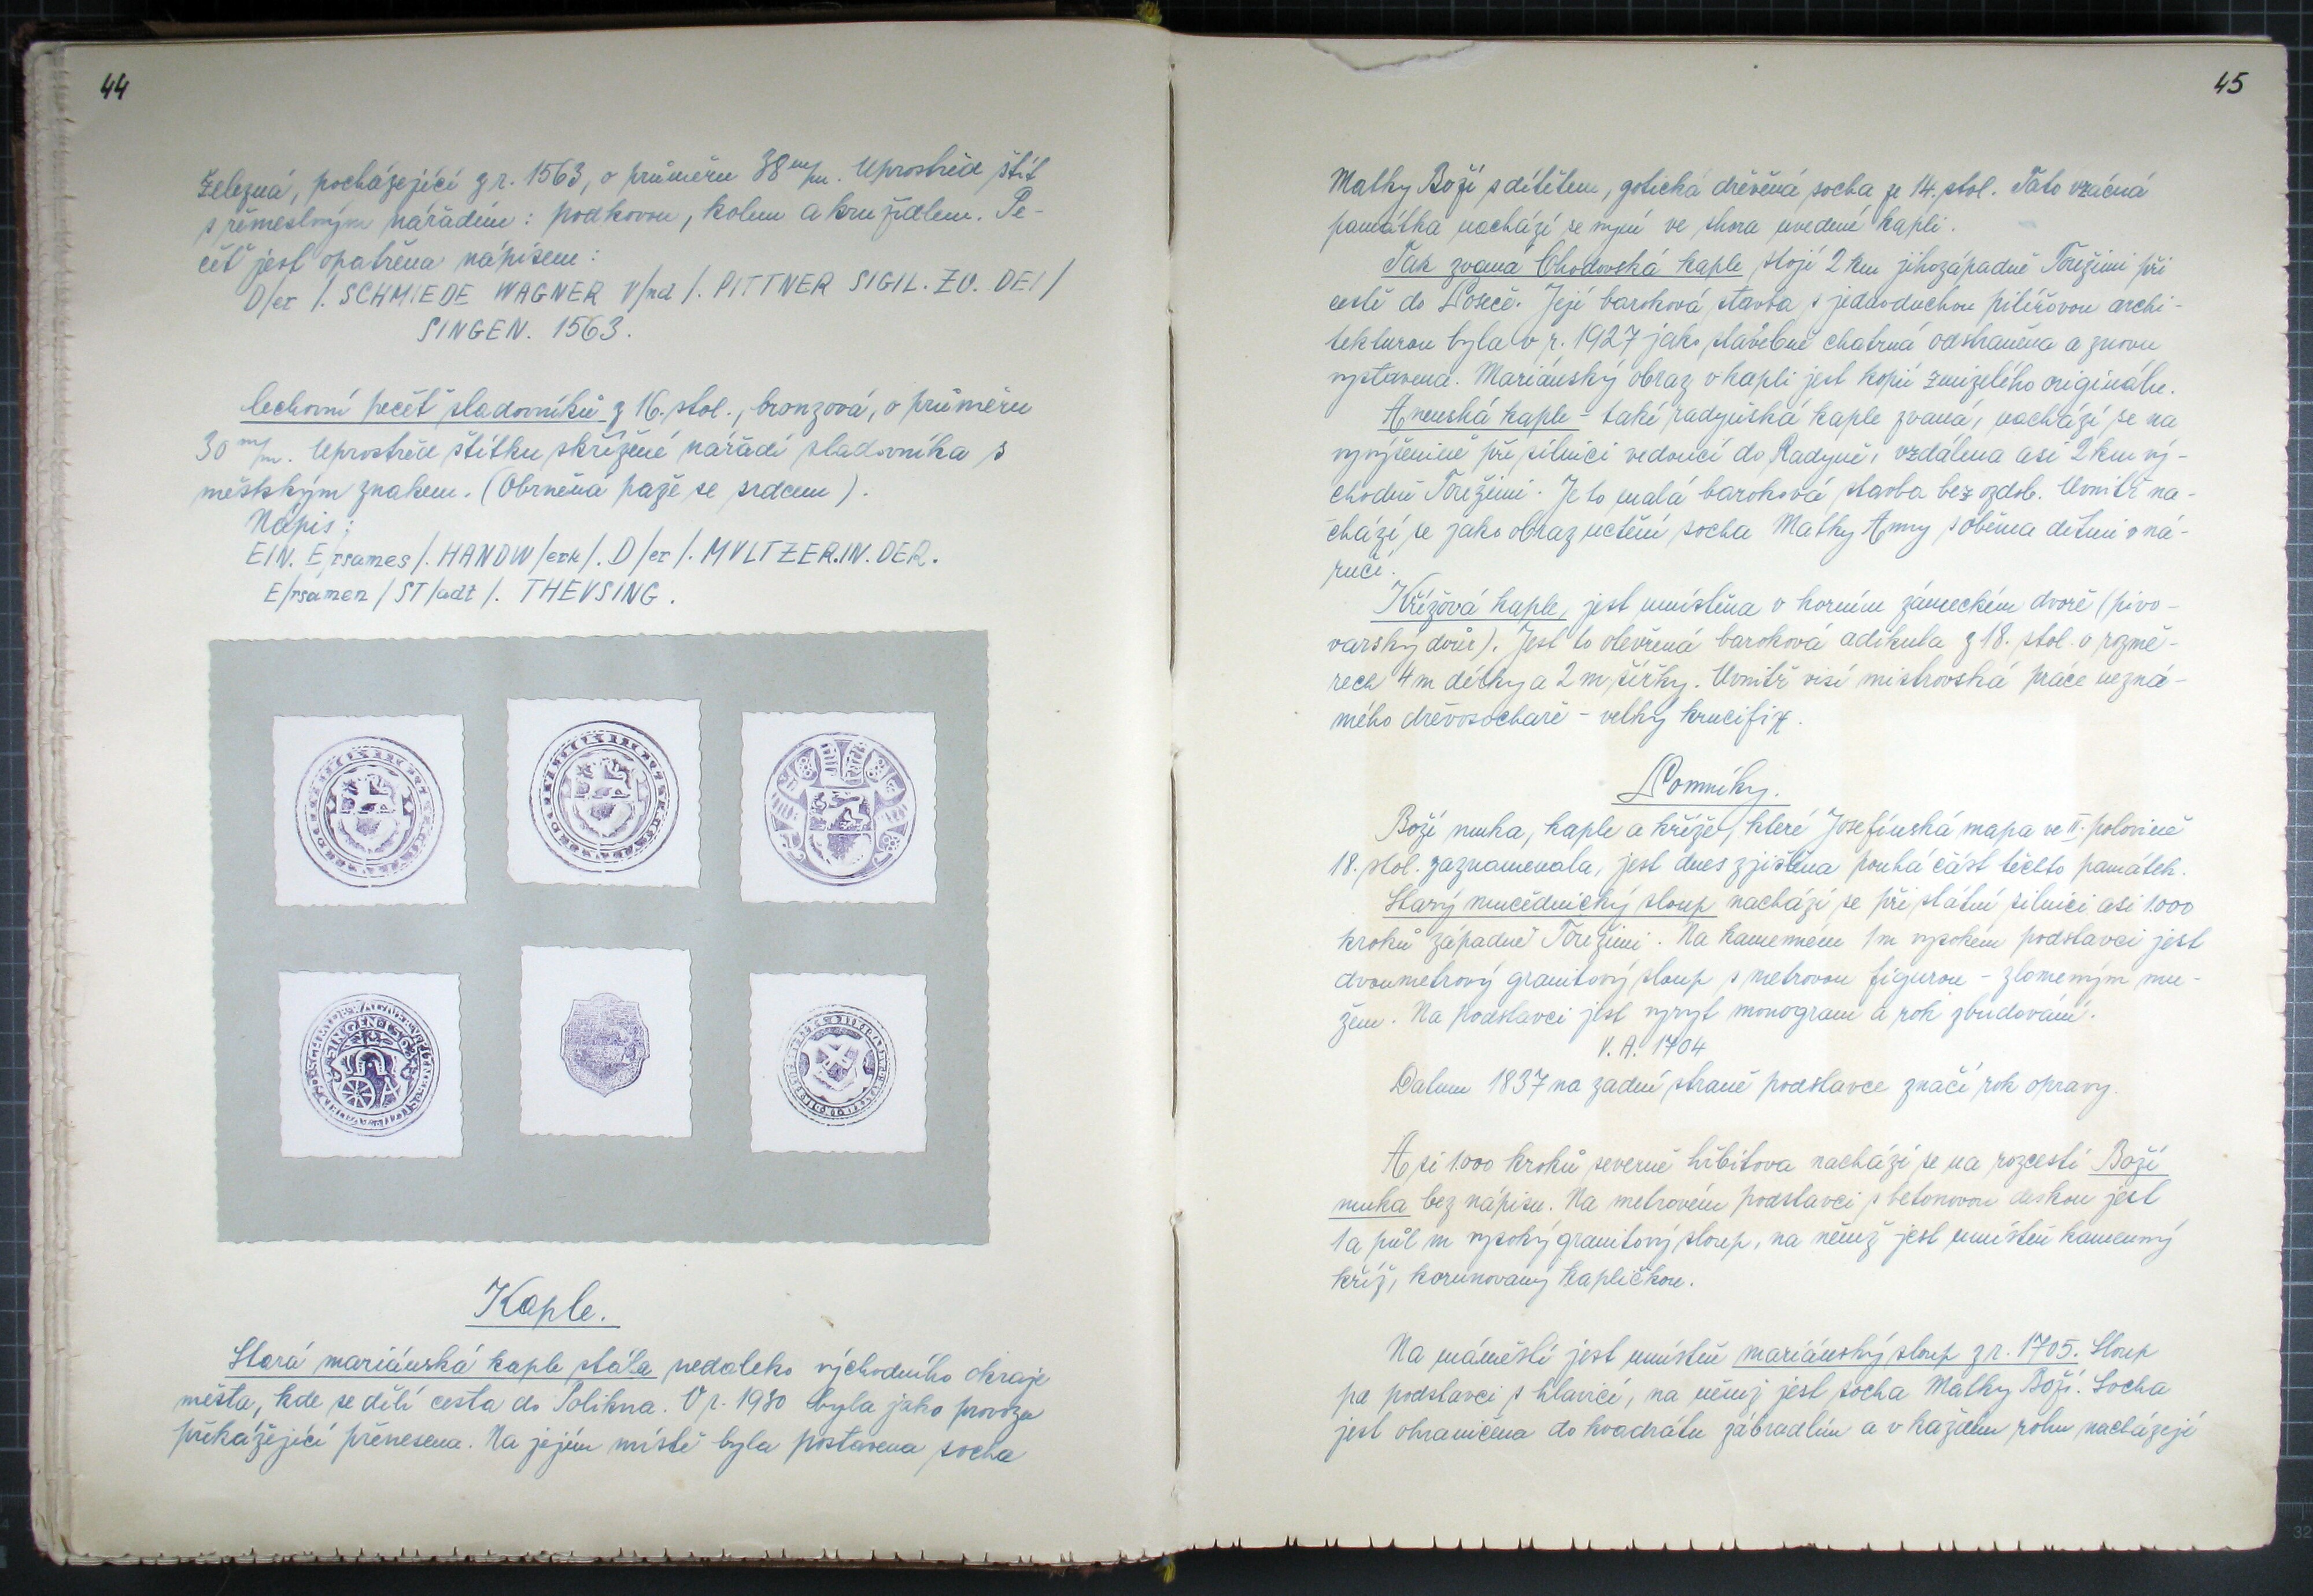 44
železná, pocházející z r. 1563, o průměru 38 m/m. Uprostřed štít
s řemeslným nářadím: podkovou, kolem a kružidlem. Pe-
čeť jest opatřena nápisem:
D/er/. SCHMIEDE WAGNER V/nd/. PITTNER SIGIL. ZV. DEI/
SINGEN. 1563.
Cechovní pečeť sladovníků z 16. stol., bronzová, o průměru
30 m/m. Uprostřed štítku skřížené nářadí sladovníka s
městským znakem. (Obrněná paže se srdcem).
Nápis:
EIN. E/rsames/. HANDW/erk/. D/er/. MVLTZER.IN.DER.
E/rsamen/ST/adt/. THEVSING.
SINGEN 1563
Kaple.
Stará mariánská kaple stála nedaleko východního okraje
města, kde se dělí cesta do Polikna. V r. 1930 byla jako provozu
překážející přenesena. Na jejím místě byla postavena socha
45
Matky Boží s dítětem, gotická dřevěná socha ze 14. stol. Tato vzácná
památka nachází se nyní ve shora uvedené kapli.
Tak zvaná Chodovská kaple stojí 2 km jihozápadně Toužimi při
cestě do Poseče. Její baroková stavba s jednoduchou pilířovou archi-
tekturou byla v r. 1927 jako stavebně chatrná odstraněna a znovu
vystavena. Mariánský obraz v kapli jest kopií zmizelého originálu.
Anenská kaple - také radyňská kaple zvaná, nachází se na
vyvýšenině při silnici vedoucí do Radyně, vzdálena asi 2 km vý-
chodně Toužimi. Je to malá baroková stavba bez ozdob. Uvnitř na-
chází se jako obraz uctění socha Matky Anny s oběma dětmi v ná-
ručí.
Křížová kaple, jest umístěna v horním zámeckém dvoře (pivo-
varský dvůr). Jest to otevřená baroková adikula z 18. stol. o rozmě-
rech 4 m délky a 2 m šířky. Uvnitř visí mistrovská práce nezná-
mého dřevosochaře - velký krucifix.
Pomníky.
Boží muka, kaple a kříže, které Josefínská mapa ve II. polovině
18. stol. zaznamenala, jest dnes zjištěna pouhá část těchto památek.
Starý mučednický sloup nachází se při státní silnici asi 1.000
kroků západně Toužimi. Na kamenném 1 m vysokém podstavci jest
dvoumetrový granitový sloup s metrovou figurou - zlomeným mu-
žem. Na podstavci jest vyryt monogram a rok zbudování.
V. A. 1704
Datum 1837 na zadní straně podstavce značí rok opravy.
Asi 1.000 kroků severně hřbitova nachází se na rozcestí Boží
muka bez nápisu. Na metrovém podstavci s betonovou deskou jest
1 a půl m vysoký granitový sloup, na němž jest umístěn kamenný
kříž, korunovaný kapličkou.
Na náměstí jest umístěn mariánský sloup z r. 1705. Sloup
na podstavci s hlavicí, na němž jest socha Matky Boží. Socha
jest ohraničena do kvadrátu zábradlím a v každém rohu nacházejí